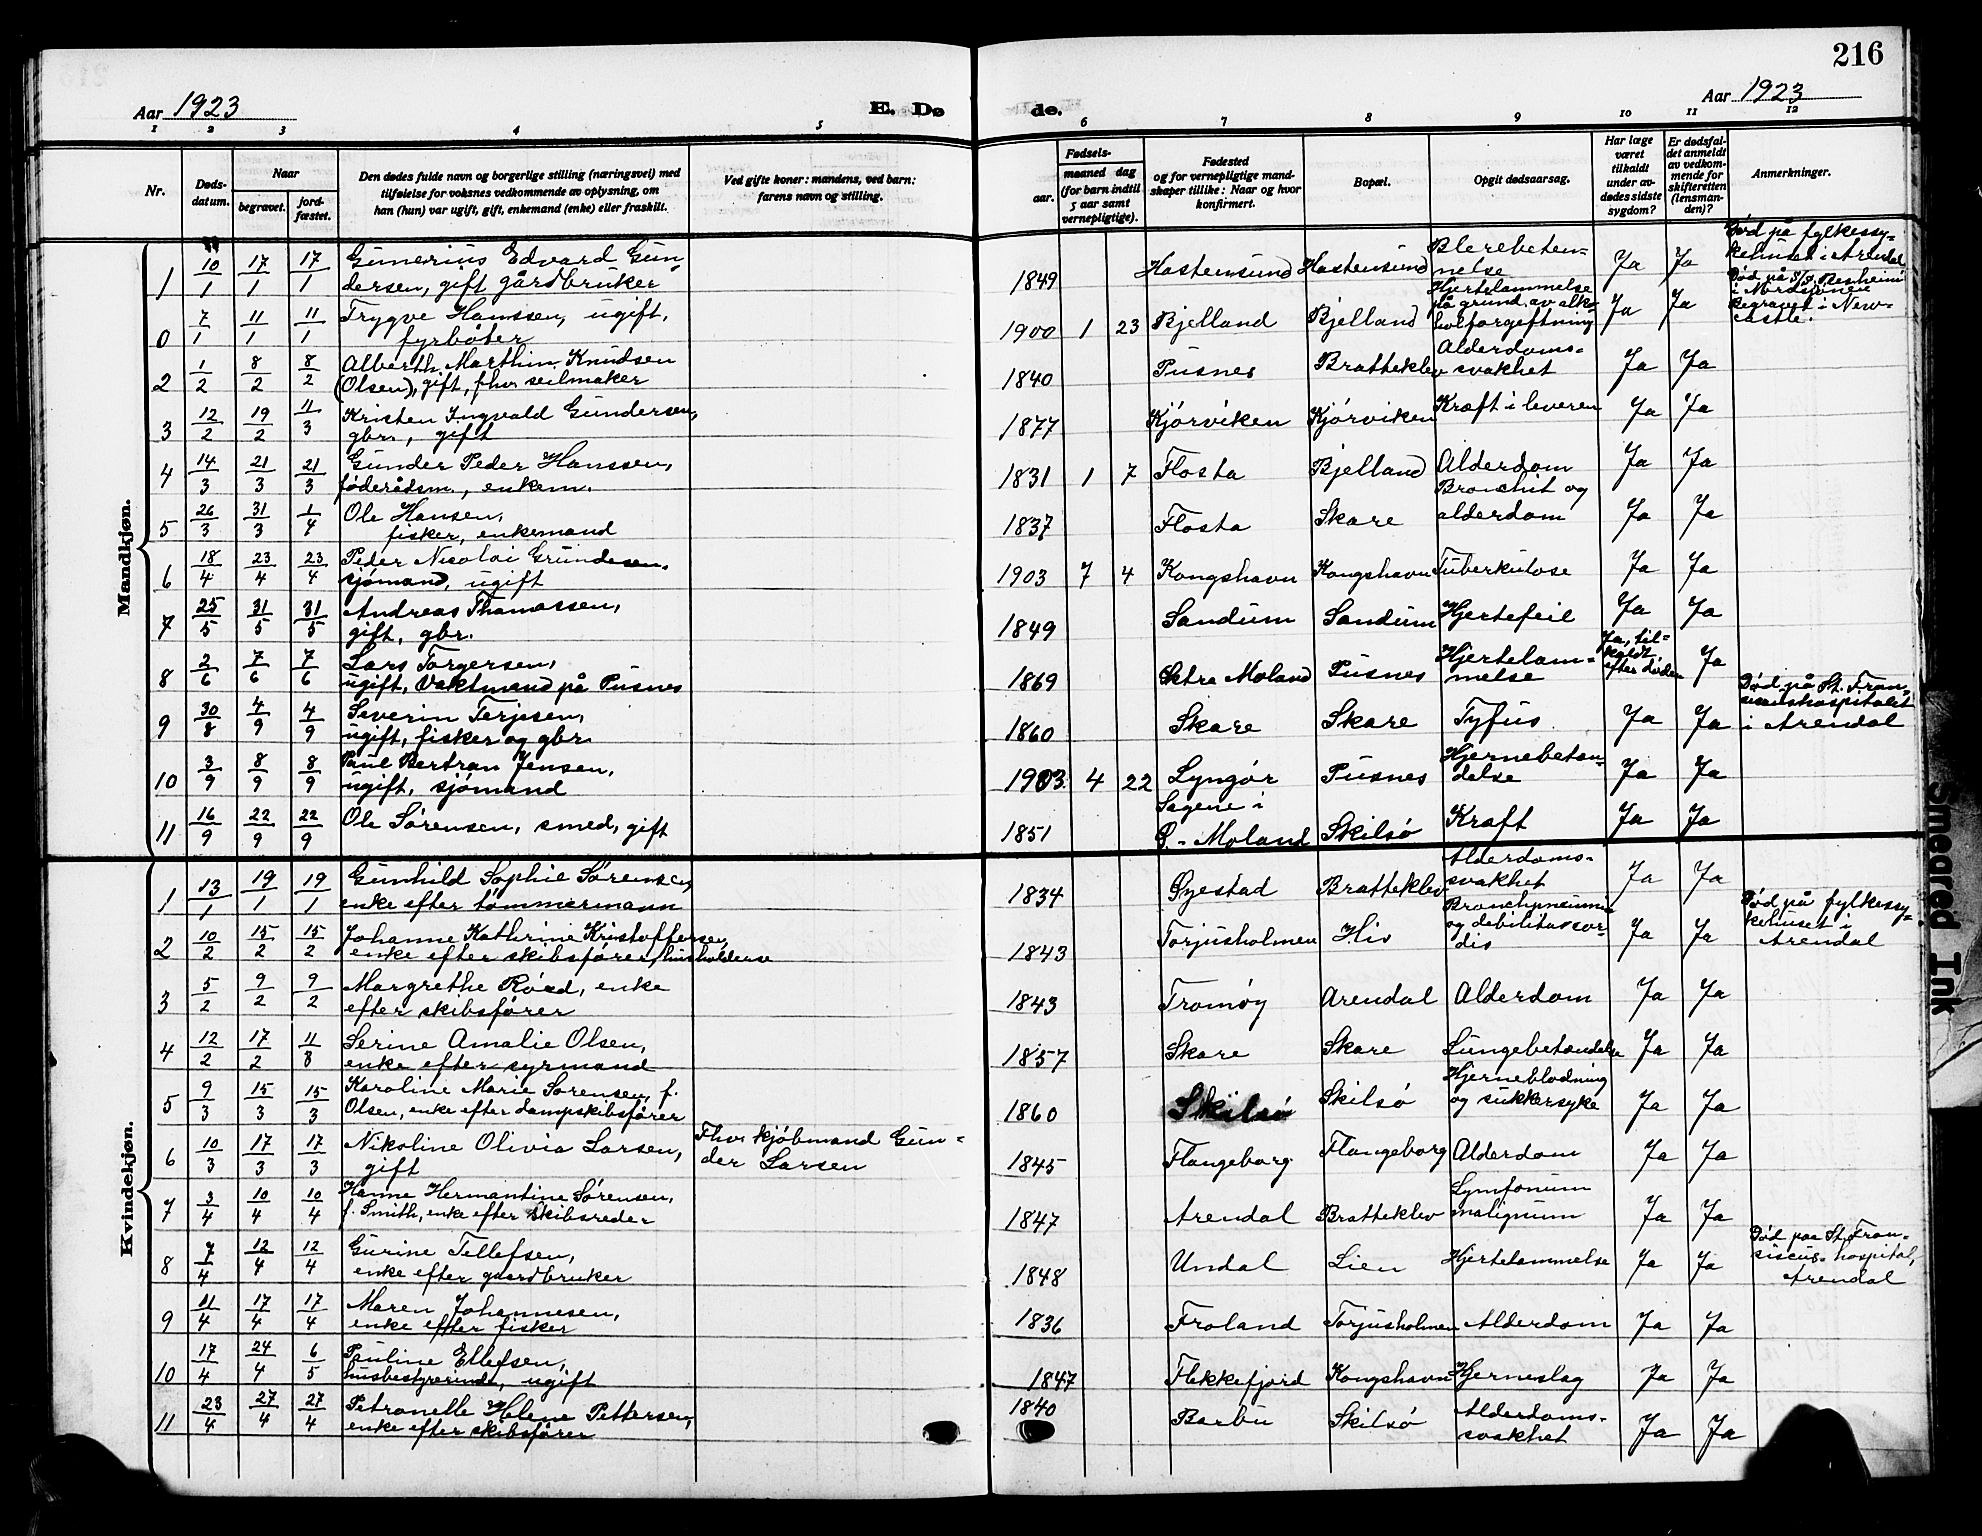 216
Aar 1923
E. Døde.
Aar 1923
1 2 3 4 5 6 7 8 9 10 11 12
Nr.
Døds-
datum.
Naar
begravet.
jord-
fæstet.
Den dødes fulde navn og borgerlige stilling (næringsvei) med
tilføielse for voksnes vedkommende av oplysning, om
han (hun) var ugift, gift, enkemand (enke) eller fraskilt.
Ved gifte koner: mandens, ved barn:
farens navn og stilling.
Fødsels-
aar.
maaned dag
(for barn indtil
5 aar samt
vernepligtige).
Fødested
og for vernepligtige mand-
skaper tillike: Naar og hvor
konfirmert.
Bopæl.
Opgit dødsaarsag.
Har læge
været
tilkaldt
under av-
dødes sidste
sygdom?
Er dødsfal-
det anmeldt
av vedkom-
mende for
skifteretten
(lensman-
den)?
Anmerkninger.
Mandkjøn.
1 10/1 17/1 17/1 Gunerius Edvard Gun-
dersen, gift gårdbruker
1849 Hastensund Hastensund Blerebeten-
nelse Ja Ja Død på fylkessy-
kehuset i Arendal
0 7/1 11/1 11/1 Trygve Hanssen, ugift,
fyrbøter
1900 1 23 Bjelland Bjelland Hjertelammelse
på grund av alko-
holforgeftning Ja Ja Død på S/S
i Nordsjøen
begravet i New-
castle.
2 1/2 8/2 8/2 Alberth Marthin Knudsen
(Olsen), gift, fhv. seilmaker
1840 Pusnes Bratteklev Alderdoms-
svakhet Ja Ja
3 12/2 19/2 11/3 Kristen Ingvald Gundersen,
gbr., gift
1877 Kjörviken Kjörviken Kræft i leveren Ja Ja
4 14/3 21/3 21/3 Gunder Peder Hanssen,
føderådsm., enkem.
1831 1 7 Flosta Bjelland Alderdom Ja Ja
5 26/3 31/3 1/4 Ole Hansen,
fisker, enkemand
1837 Flosta Skare Bronchit og
alderdom Ja Ja
6 18/4 23/4 23/4 Peder Nicolai Grundesen,
sjömand, ugift
1903 7 4 Kongshavn Kongshavn Tuberkulose Ja Ja
7 25/5 31/5 31/5 Andreas Thomassen,
gift, gbr.
1849 Sandum Sandum Hjertefeil Ja Ja
8 2/6 7/6 7/6 Lars Torgersen,
ugift, Vaktmand på Pusnes
1869 Østre Moland Pusnes Hjertelam-
melse Ja, til-
kaldt
efter døden Ja
9 30/8 4/9 4/9 Severin Terjesen,
ugift, fisker og gbr.
1860 Skare Skare Tyfus Ja Ja Død på St. Fran-
siscushospitalet
i Arendal
10 3/9 8/9 8/9 Paul Bertran Jensen,
ugift, sjömand
1903. 4 22 Lyngör Pusnes Hjernebetæn-
delse Ja Ja
11 16/9 22/9 22/9 Ole Sörensen, smed, gift
1851 Sagene i
Ø.-Moland Skilsö Kræft Ja Ja
Kvindekjøn.
1 13/1 19/1 19/1 Gunhild Sophie Sørensen,
enke efter tømmermann
1834 Øyestad Bratteklev Alderdoms-
svakhet Ja Ja
2 10/2 15/2 15/2 Johanne Kathrine Kristoffersen,
enke efter skibsfører, husholderse
1843 Torjusholmen His Bronchpneumni
og debilitas cor-
dis Ja Ja Død på fylkessy-
kehuset i
Arendal
3 5/2 9/2 9/2 Margrethe Röed, enke
efter skibsfører
1843 Tromøy Arendal Alderdom Ja Ja
4 12/2 17/2 11/8 Serine Amalie Olsen,
enke efter syrmand
1857 Skare Skare Lungebetændelse Ja Ja
5 9/3 15/3 15/3 Karoline Marie Sørensen, f.
Olsen, enke efter dampskibsfører
1860 Skilsö Skilsö Hjerneblødning
og sukkersyke Ja Ja
6 10/3 17/3 17/3 Nikoline Olivia Larsen,
gift
Fhv. kjöbmand Gun-
der Larsen
1845 Flangeborg Flangeborg Alderdom Ja Ja
7 3/4 10/4 10/4 Hanne Hermantine Sörensen,
f. Smith, enke efter skibsreder
1847 Arendal Bratteklev Lymfonum
malignum Ja Ja
8 7/4 12/4 12/4 Gurine Tellefsen,
enke efter gaardbruker
1848 Undal Lien Hjertelammelse Ja Ja Død paa St. Fran-
siscus-hospital,
Arendal
9 11/4 17/4 17/4 Maren Johannesen,
enke efter fisker
1836 Froland Torjusholmen Alderdom Ja Ja
10 17/4 24/4 6/5 Pauline Ellefsen,
husbestyrerinde, ugift
1847 Flekkefjord Kongshavn Hjerneslag Ja Ja
11 23/4 27/4 27/4 Petronelle Helene Pettersen,
enke efter skibsfører
1840 Barbu Skilsö Alderdoms-
svakhet Ja Ja
Smeared Ink